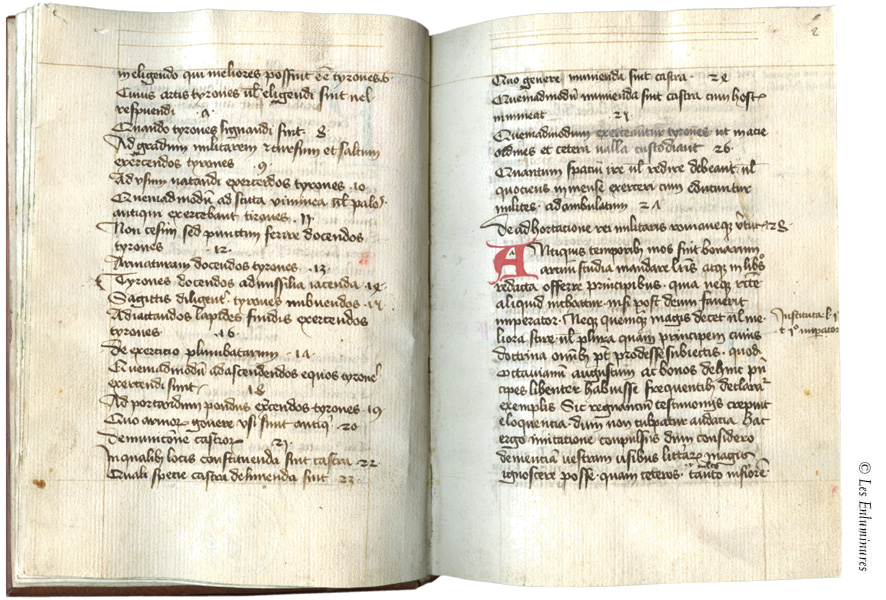 in eligendo qui meliores possint eē tyrones · 6 ·
Cuius artis tyrones ul' eligendi sint uel
respuendi · ʌ ·
Quando tyrones signandi sint · 8
Ad gradum militarem et cursum et saltum
exercendos tyrones · 9 ·
Ad usum natandi exercendos tyrones · 10
Quemadmodū ad scuta viminea ul' palos
antiqui exercebant tirones · 11
Non cesim sed punctim ferire docendos
tyrones · 12 ·
Armaturam docendos tyrones · 13 ·
Tyrones docendos ad missilia iacenda · 14 ·
Sagittis diligent' tyrones imbuendos · 15
Ad iactandos lapides fundis exercendos
tyrones · 16
De exercicio plumbatarum · 1ʌ
Quemadmodū ad ascendendos equos tyrones
exercendi sunt · 18
Ad portandum pondus exercendos tyrones · 19
Quo armorum genere usi sunt antiqui · 20
De municione castrorum 21 ·
In qualibus locis constituenda sint castra · 22
Quali specie castra delinienda sint · 23 ·
2
Quo genere munienda sint castra · 24
Quemadmodū munienda sint castra cum hostis
immineat 25
Quemadmodum exerceantur tyrones ut in acie
ordines et cetera ualla custodiant 26 ·
Quantum spatiū ire ul' redire debeant ul'
quociens in mense exerceri cum educuntur
milites · ad ambulatum 2ʌ
De adhortacione rei militaris romaneque 28 ·
Antiquis temporibus mos fuit bonarum
arcium studia mandare l'ris atque in libros
redacta offerre principibus · quia neque recte
aliquid inchoatur · nisi post deum fauerit
imperator · Neque quemquam magis decet ul' me-
liora scire ul' plura quam principem cuius
doctrina omnibus potest prodesse subiectis · quod
octauianum augustum ac bonos dehinc prin-
cipes libenter habuisse frequentibus declaratur
exemplis Sic regnantium testimoniis crepuit
eloquentia dum non culpatur audacia Hac
ergo imitacione compulsus dum considero
clementiam uestram ausibus litterarum magis
ignoscere posse · quam ceteros · tanto inferiorem
Justituta l. 1
t 1° imperator
© Les Enluminures